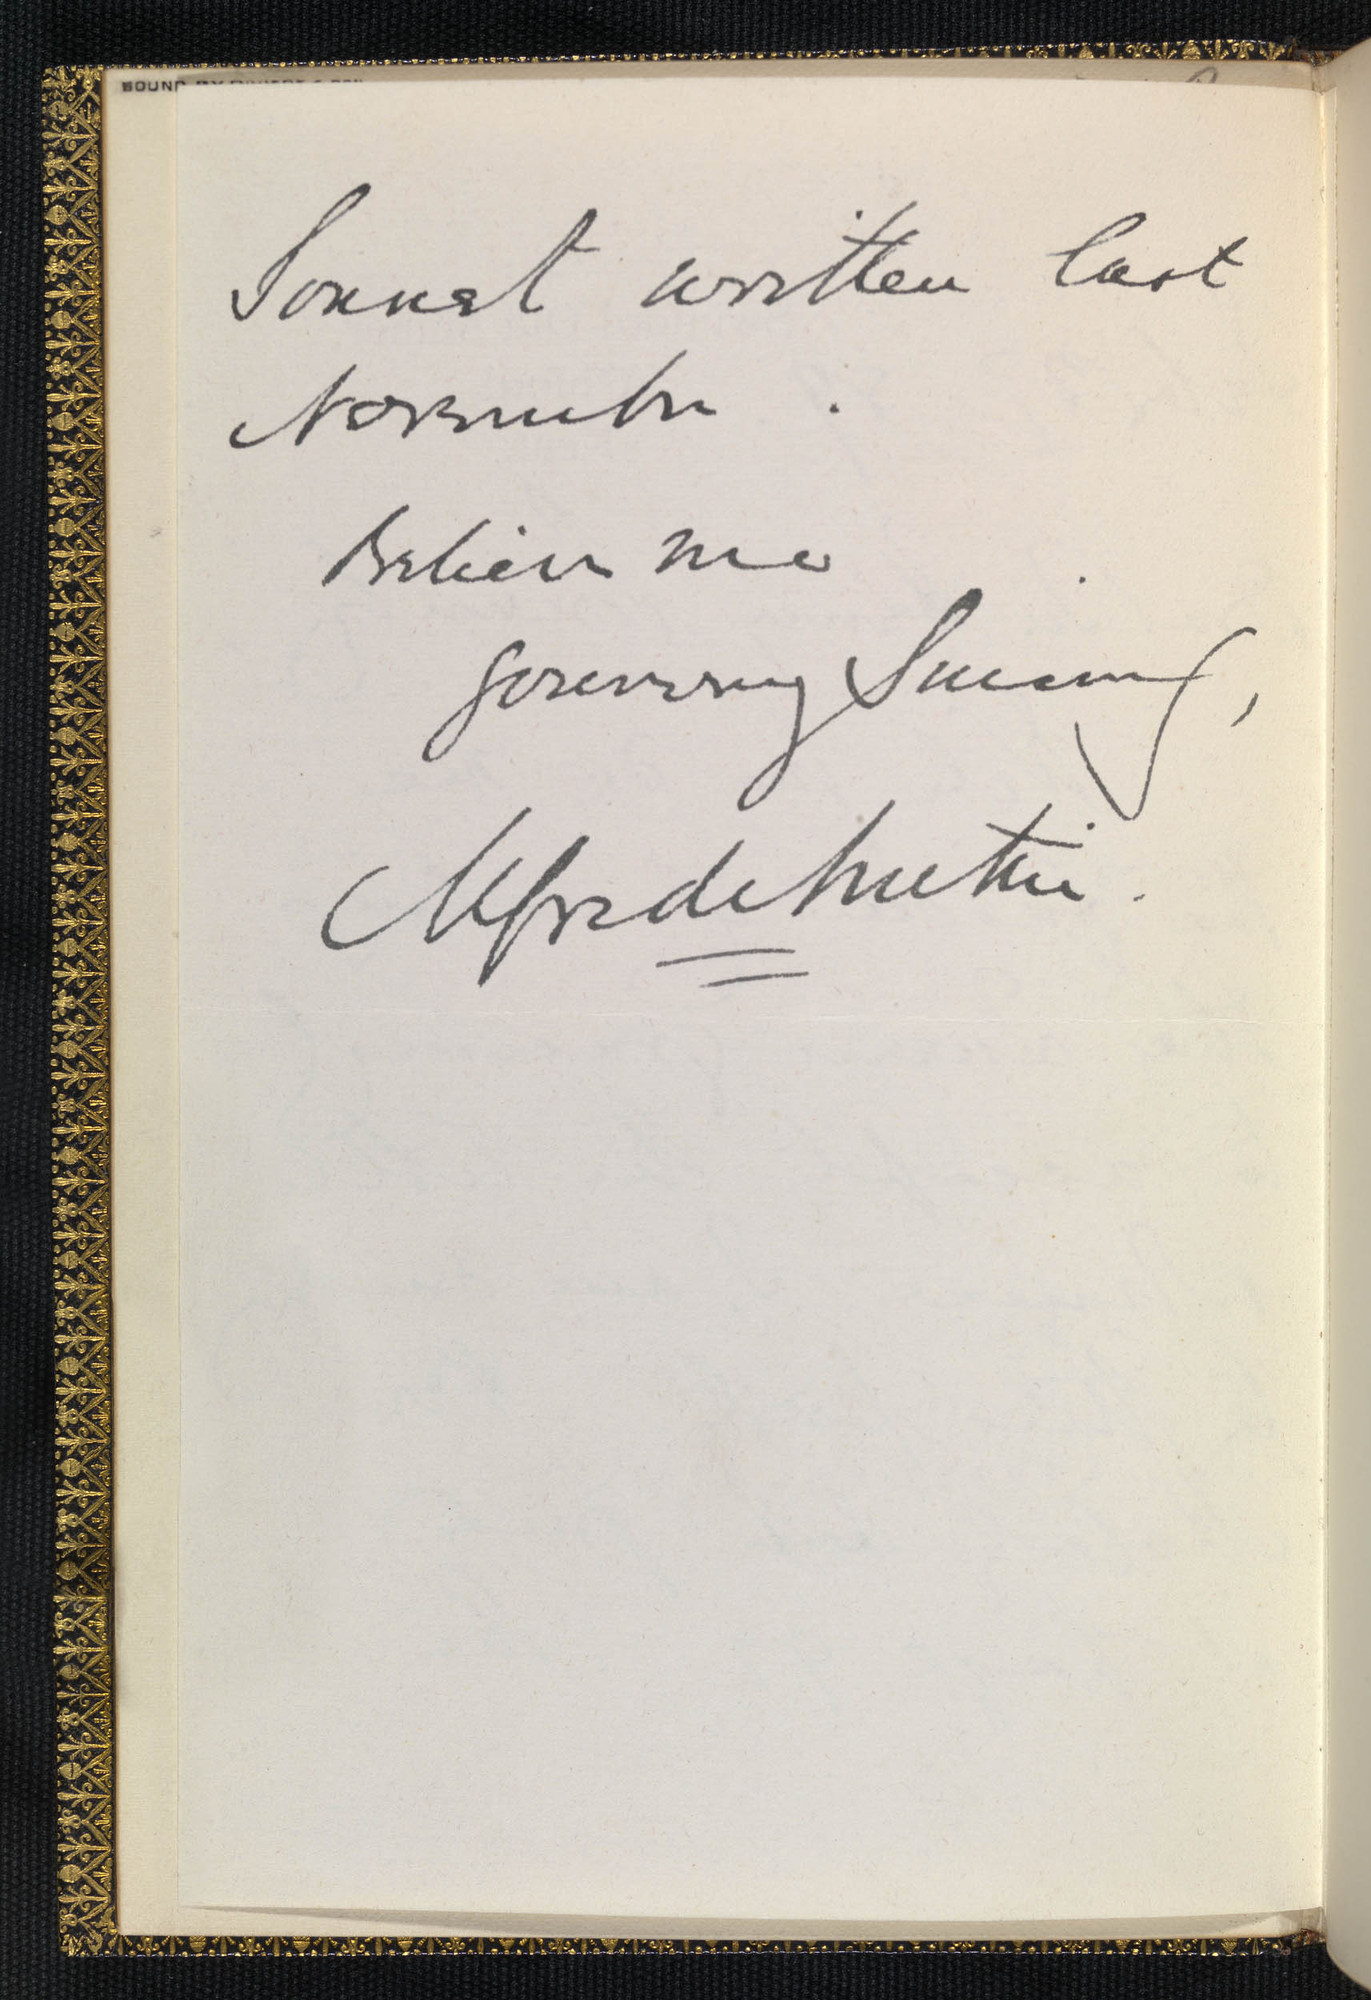 BOUND BY
Sonnet written last
November.
Believe me
yours very Sincerely,
Alfred Austin.